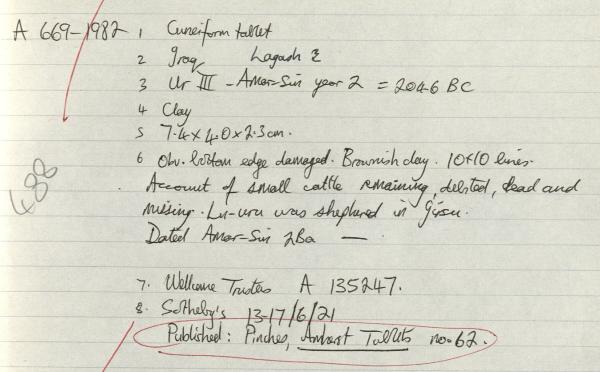 A 669-1982 1 Cuneiform tablet
2 Iraq Lagash
3 Ur III - Amar-Sin year 2 = 2046 BC
4 Clay
5 7.4 x 4.0 x 2.3 cm.
6 Obv. bottom edge damaged. Brownish clay. 10+10 lines.
Account of small cattle remaining, debited, dead and
missing. Lu-uru was shepherd in Girsu.
Dated Amar-Sin 2Ba —
488
7. Wellcome Trustees A 135247.
8. Sotheby's 13-17/6/21
Published: Pinches, Amherst Tablets no. 62.